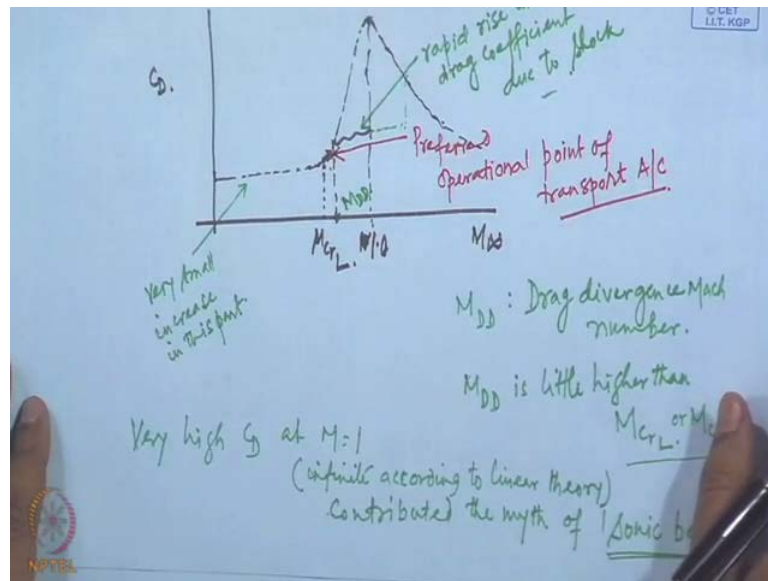 © CET
I.I.T. KGP
rapid rise
drag coefficient
due to shock
C_D.
Preferred
operational point of
transport A/C.
M_DD
M_CrL. M_∞
very small
increase
in this part
M_DD : Drag divergence Mach
number.
M_DD is little higher than
M_CrL. or
Very high C_D at M=1
(infinite according to linear theory)
contributed the myth of 'Sonic
NPTEL